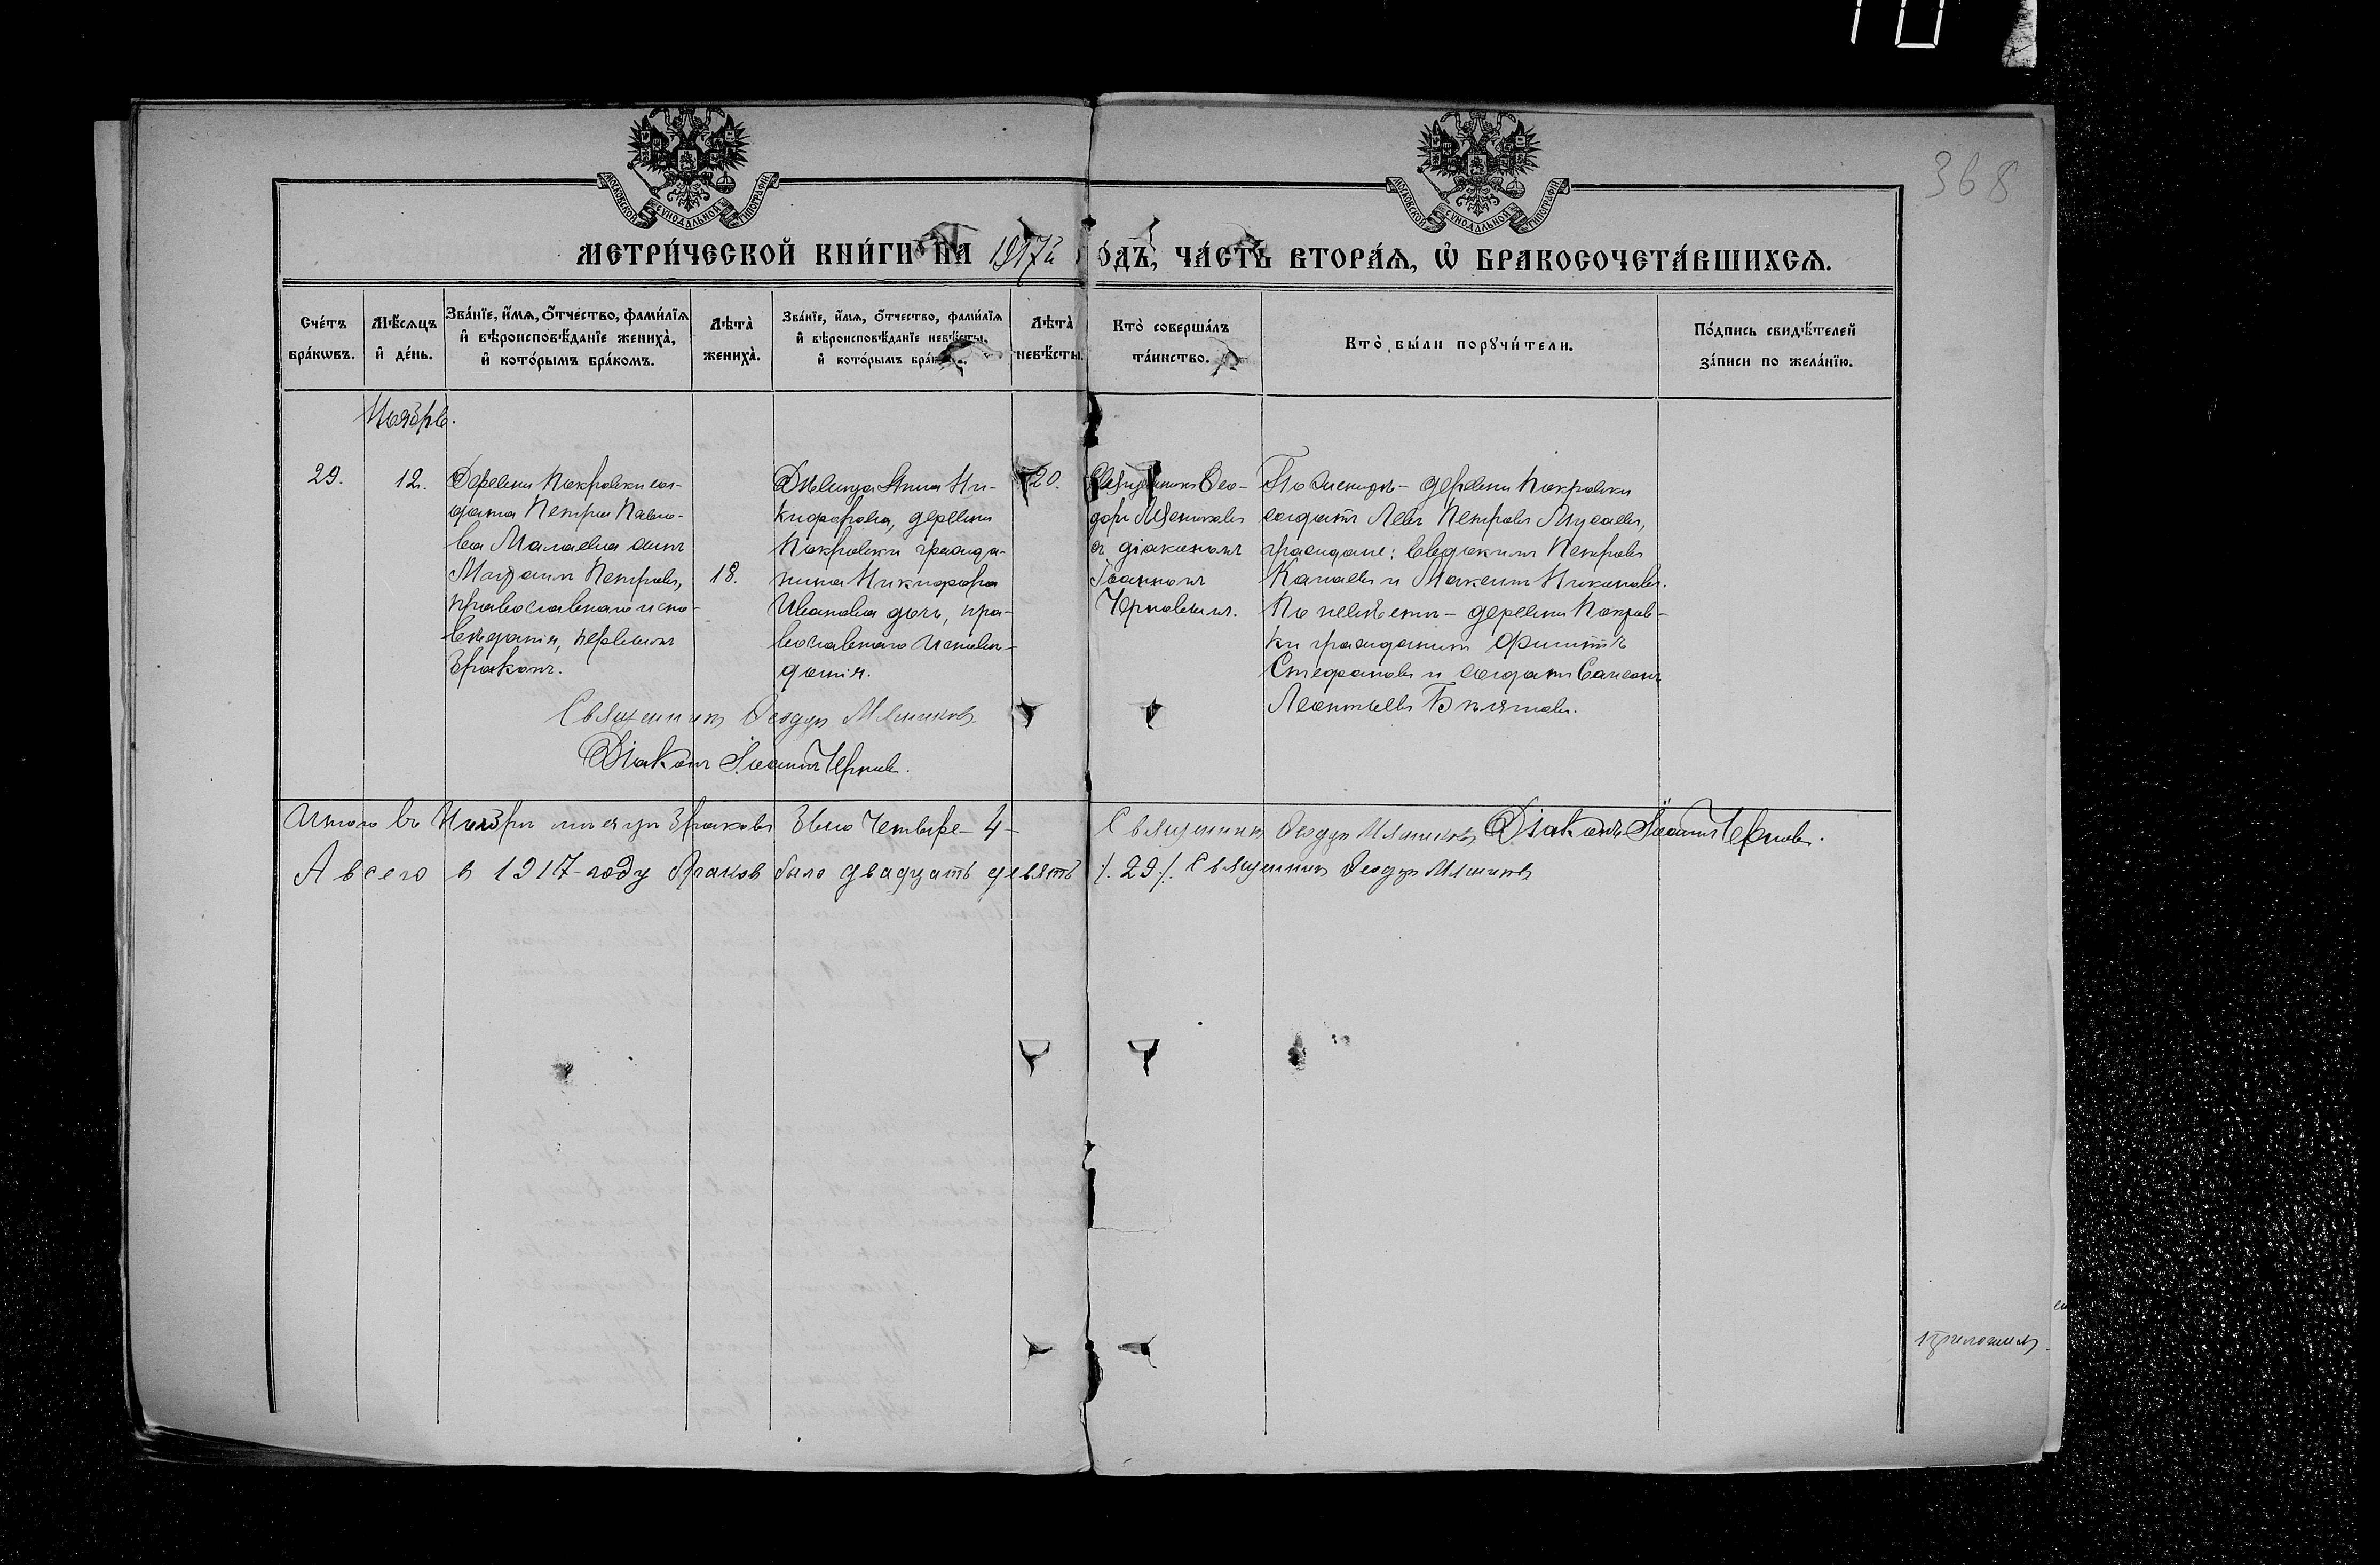 368
МОСКОВСКОЙ СѴНОДАЛЬНОЙ ТИПОГРАФІИ
МОСКОВСКОЙ СѴНОДАЛЬНОЙ ТИПОГРАФІИ
МЕТРИ́ЧЕСКОЙ КНИ́ГИ НА 1917й ГОДЪ, ЧА́СТЬ ВТОРА́Ѧ, Ѡ҆ БРАКОСОЧЕТА́ВШИХСѦ.
Сче́тъ бра́кѡвъ.
Мѣ́сѧцъ и҆ де́нь.
Зва́нїе, и҆́мѧ, ѻ҆́тчество, фами́лїѧ и҆ вѣроисповѣ́данїе жениха̀, и҆ кото́рымъ бра́комъ.
Лѣта̀ жениха̀.
Зва́нїе, и҆́мѧ, ѻ҆́тчество, фами́лїѧ и҆ вѣроисповѣ́данїе невѣ́сты, и҆ кото́рымъ бра́комъ.
Лѣта̀ невѣ́сты.
Кто̀ соверша́лъ та́инство.
Кто̀ бы́ли порꙋчи́тели.
По́дпись свидѣ́телей за́писи по жела́нїю.
Ноябрь.
29.
12.
Деревни Покровки сол-
дата Петра Павло-
ва Малаева сынъ
Петровъ,
православнаго испо-
вѣданія, первымъ
бракомъ.
18.
Дѣвица Анна Ни-
кифорова, деревни
Покровки гражда-
нина Никифора
Иванова дочь, пра-
вославнаго исповѣ-
данія.
20.
Священникъ Ѳео-
доръ
съ діакономъ
Іоанномъ
Черновымъ.
По женихѣ - деревни Покровки
солдатъ Левъ Петровъ
граждане: Евдокимъ Петровъ
Канаевъ и Максимъ
По невѣстѣ - деревни Покров-
ки гражданинъ Филиппъ
Стефановъ и солдатъ Самсонъ
Леонтьевъ
Священникъ Ѳеодоръ
Діаконъ Іоаннъ Черновъ.
Итого въ Ноябрѣ мѣсяцѣ браковъ было четыре - 4 -
Священникъ Ѳеодоръ Діаконъ Іоаннъ Черновъ.
А всего в 1917 году браков было двадцать девять /. 29 /. Священникъ Ѳеодоръ